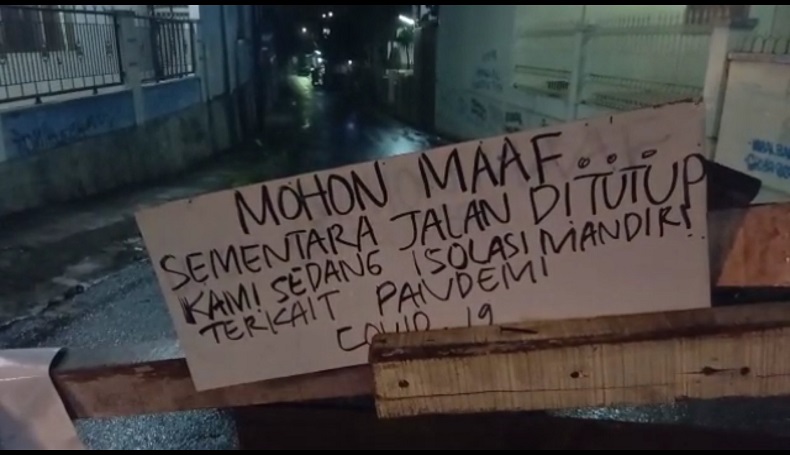 MOHON MAAF....
SEMENTARA JALAN DITUTUP
KAMI SEDANG ISOLASI MANDIRI
TERKAIT PANDEMI
COVID-19